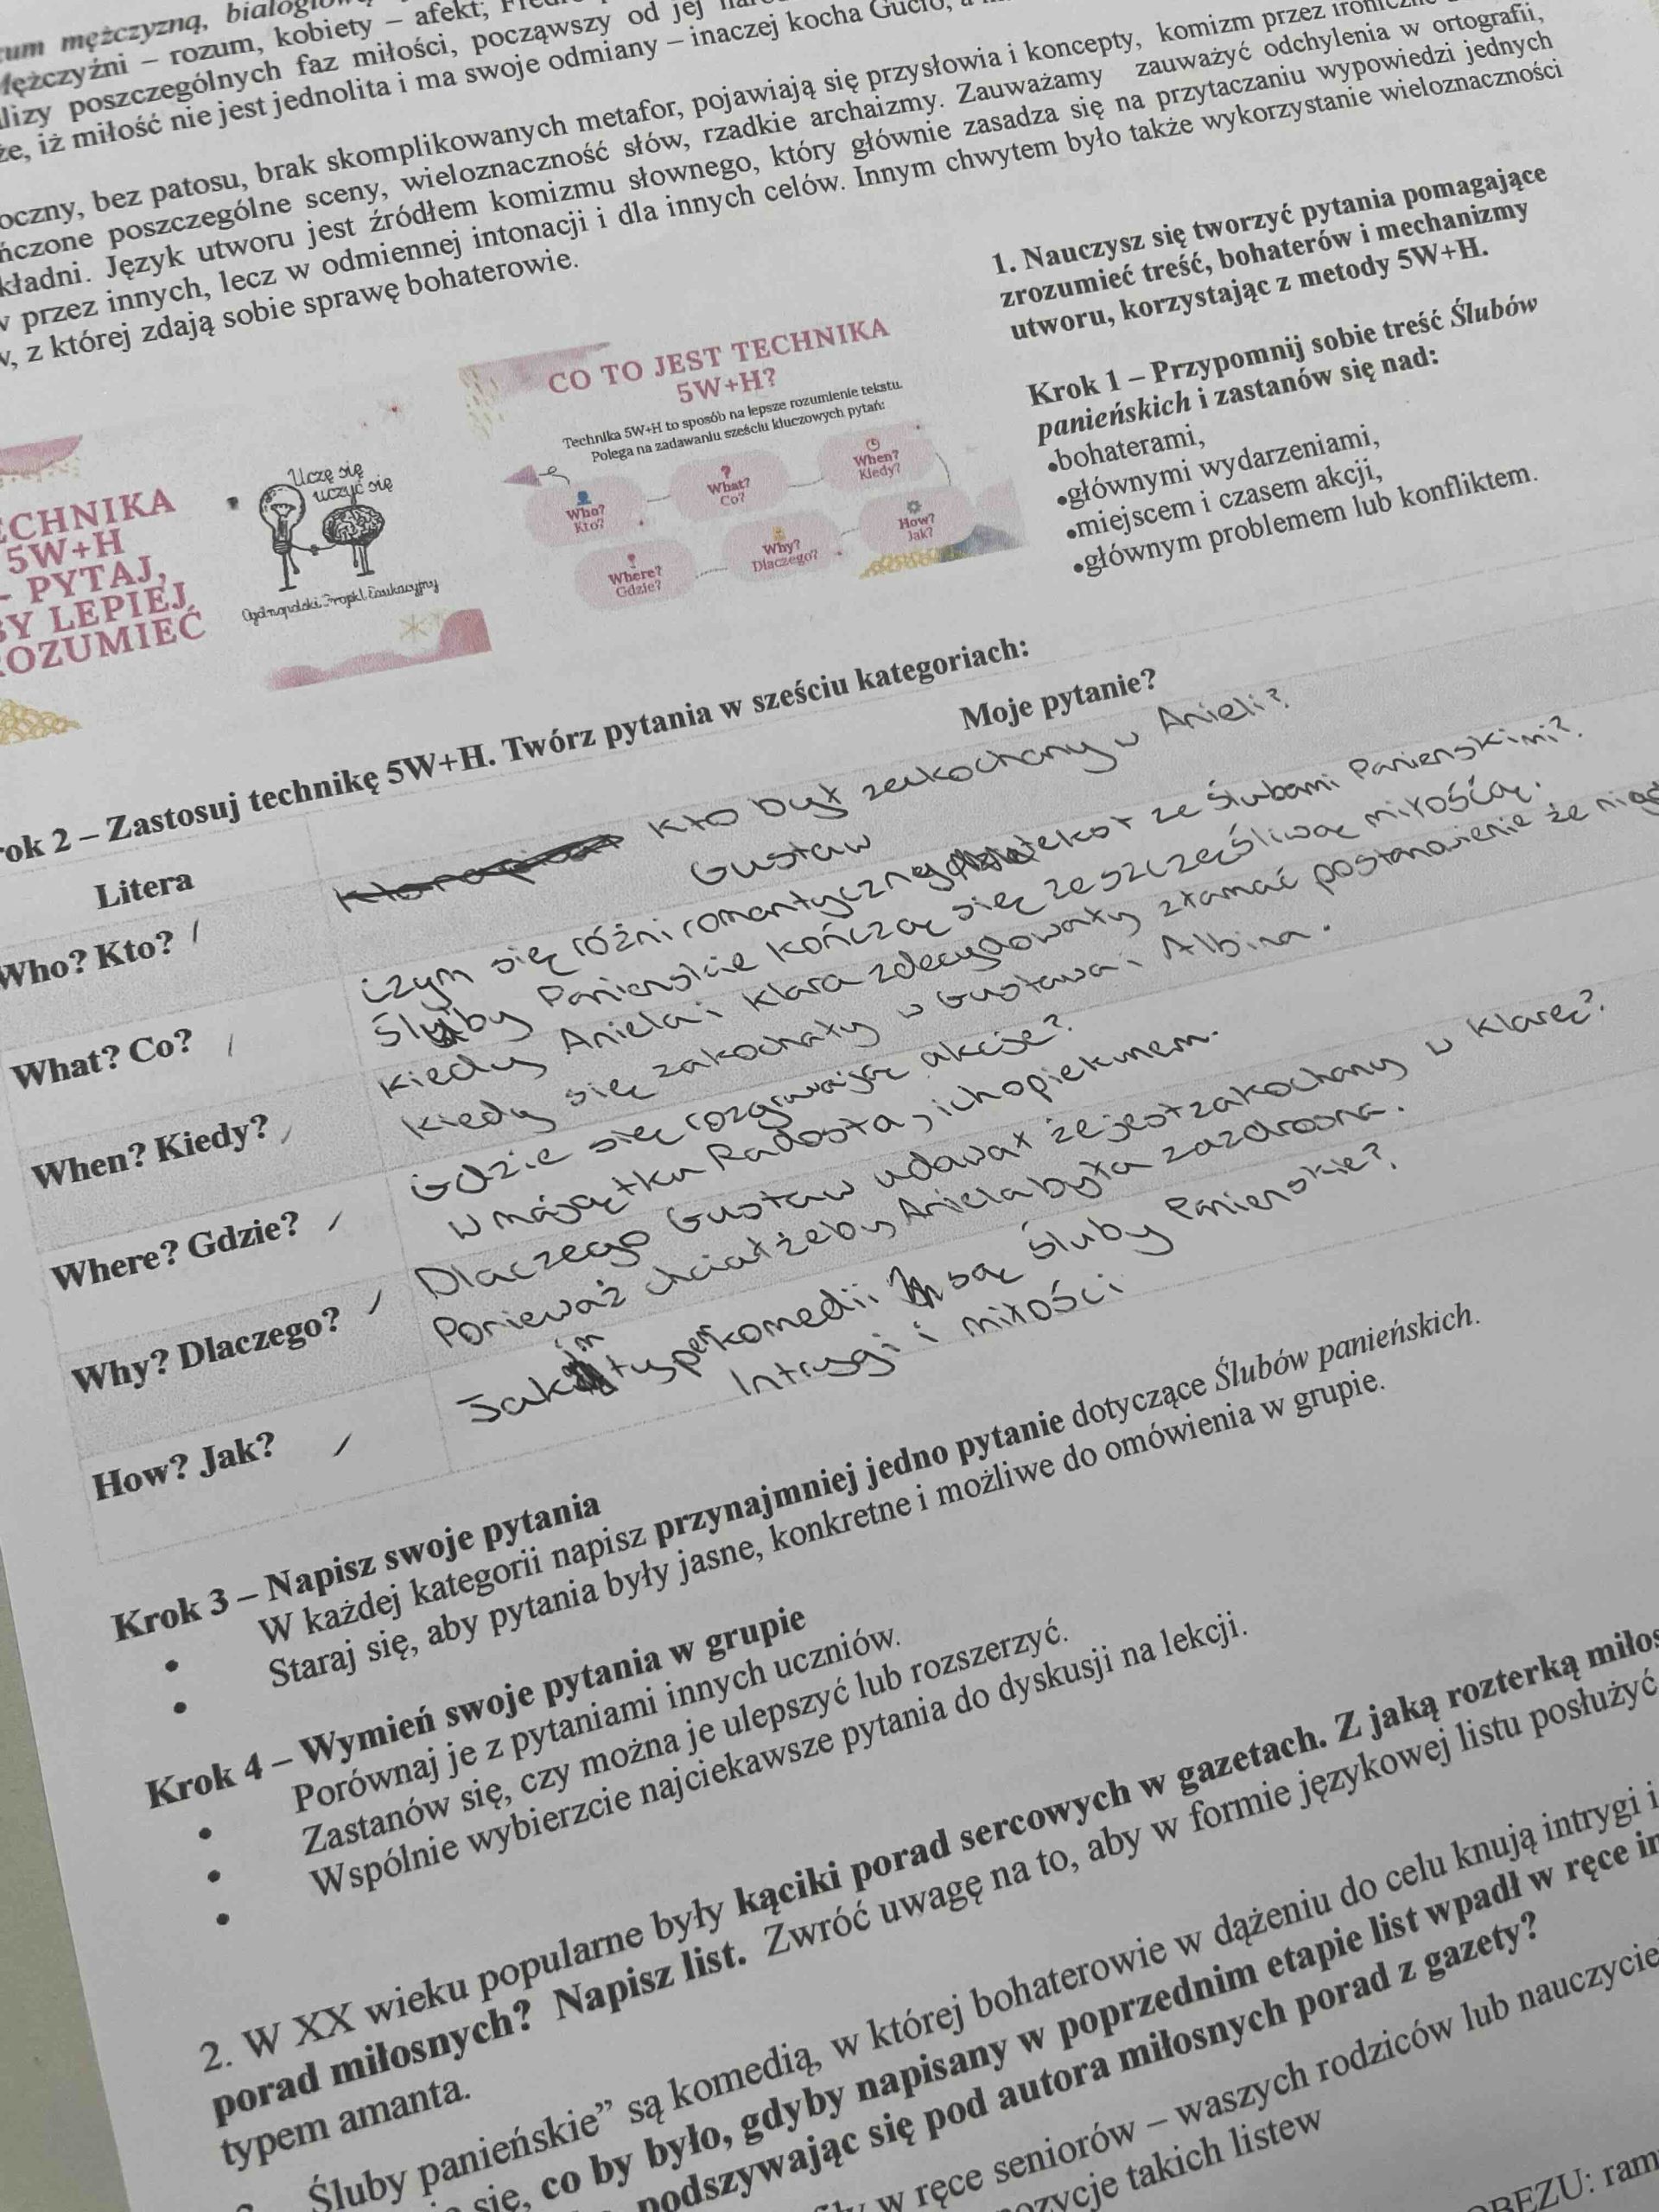 mężczyzną,
Mężczyźni – rozum, kobiety – afekt;
poszczególnych faz miłości, począwszy od jej
że, iż miłość nie jest jednolita i ma swoje odmiany – inaczej kocha Gucio,
bez patosu, brak skomplikowanych metafor, pojawiają się przysłowia i koncepty, komizm przez
poszczególne sceny, wieloznaczność słów, rzadkie archaizmy. Zauważamy zauważyć odchylenia w ortografii,
Język utworu jest źródłem komizmu słownego, który głównie zasadza się na przytaczaniu wypowiedzi jednych
przez innych, lecz w odmiennej intonacji i dla innych celów. Innym chwytem było także wykorzystanie wieloznaczności
z której zdają sobie sprawę bohaterowie.
1. Nauczysz się tworzyć pytania pomagające
zrozumieć treść, bohaterów i mechanizmy
utworu, korzystając z metody 5W+H.
Krok 1 – Przypomnij sobie treść Ślubów
panieńskich i zastanów się nad:
•bohaterami,
•głównymi wydarzeniami,
•miejscem i czasem akcji,
•głównym problemem lub konfliktem.
CO TO JEST TECHNIKA
5W+H?
Technika 5W+H to sposób na lepsze rozumienie tekstu.
Polega na zadawaniu sześciu kluczowych pytań:
Who?
Kto?
What?
Co?
When?
Kiedy?
Where?
Gdzie?
Why?
Dlaczego?
How?
Jak?
ECHNIKA
5W+H
– PYTAJ,
BY LEPIEJ
ROZUMIEĆ
Uczę się
uczyć się
Ogólnopolski Projekt Edukacyjny
rok 2 – Zastosuj technikę 5W+H. Twórz pytania w sześciu kategoriach:
Litera
Moje pytanie?
Who? Kto?
Kto był zakochany w Anieli?
Gustaw
What? Co?
Czym się różni romantyczny tekst ze Ślubami Panienskimi?
Śluby Panienskie kończą się ze szczęśliwą miłością.
When? Kiedy?
Kiedy Aniela i Klara zdecydowały złamać postanowienie że
Kiedy się zakochały w Gustawa i Albina.
Where? Gdzie?
Gdzie się rozgrywają akcje?
W majątku Radosta, ich opiekunem.
Why? Dlaczego?
Dlaczego Gustaw udawał że jest zakochany w Klarę?
Ponieważ chciał żeby Aniela była zazdrosna.
How? Jak?
Jakim typem komedii są śluby Panienskie?
Intrygi i miłości
Krok 3 – Napisz swoje pytania
• W każdej kategorii napisz przynajmniej jedno pytanie dotyczące Ślubów panieńskich.
• Staraj się, aby pytania były jasne, konkretne i możliwe do omówienia w grupie.
Krok 4 – Wymień swoje pytania w grupie
• Porównaj je z pytaniami innych uczniów.
• Zastanów się, czy można je ulepszyć lub rozszerzyć.
• Wspólnie wybierzcie najciekawsze pytania do dyskusji na lekcji.
2. W XX wieku popularne były kąciki porad sercowych w gazetach. Z jaką rozterką
porad miłosnych? Napisz list. Zwróć uwagę na to, aby w formie językowej listu posłużyć
typem amanta.
Śluby panieńskie” są komedią, w której bohaterowie w dążeniu do celu knują intrygi i
się, co by było, gdyby napisany w poprzednim etapie list wpadł w ręce
podszywając się pod autora miłosnych porad z gazety?
w ręce seniorów – waszych rodziców lub
takich listew